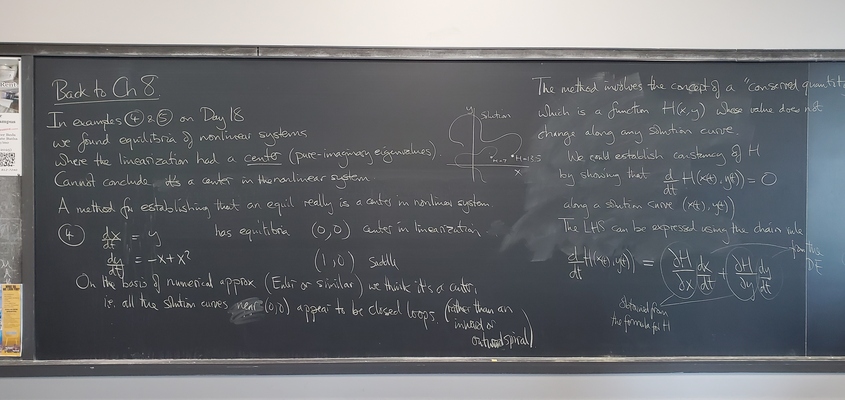 Back to Ch 8.
In examples ④ & ⑤ on Day 18
we found equilibria of nonlinear systems
where the linearization had a center (pure-imaginary eigenvalues).
Cannot conclude it's a center in the nonlinear system.
A method for establishing that an equil really is a center in nonlinear system.
④ dx/dt = y has equilibria (0,0) center in linearization.
dy/dt = -x + x² (1,0) saddle
On the basis of numerical approx (Euler or similar) we think it's a center,
i.e. all the solution curves near (0,0) appear to be closed loops. (rather than an
inward or
outward spiral)
y
solution
H=7
x
The method involves the concept of a "conserved quantity
which is a function H(x,y) whose value does not
change along any solution curve.
We could establish constancy of H
by showing that d/dt H(x(t), y(t)) = 0
along a solution curve (x(t), y(t))
The LHS can be expressed using the chain rule
d/dt H(x(t), y(t)) = ∂H/∂x dx/dt + ∂H/∂y dy/dt
from the
DE
obtained from
the formula for H